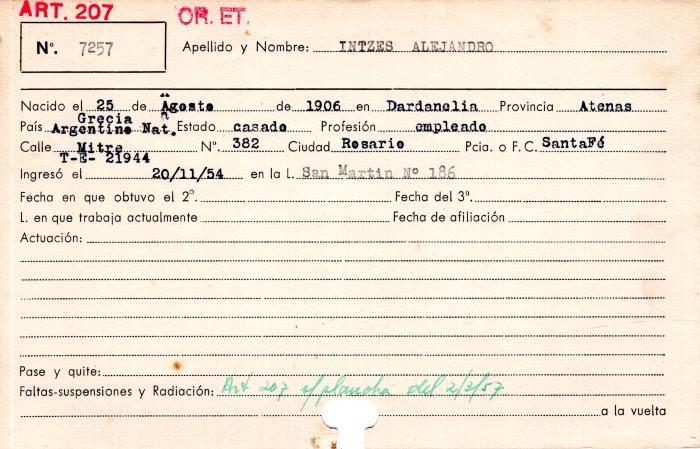 ART. 207
OR. ET.
Nº. 7257
Apellido y Nombre: INTZES ALEJANDRO
Nacido el 25 de Agosto de 1906 en Dardanelia Provincia Atenas
Grecia
País Argentino Nat. Estado casado Profesión empleado
Calle Mitre Nº. 382 Ciudad Rosario Pcia. o F. C. SantaFé
T-E- 21944
Ingresó el 20/11/54 en la L. San Martin Nº 186
Fecha en que obtuvo el 2º. Fecha del 3º.
L. en que trabaja actualmente Fecha de afiliación
Actuación:
Pase y quite:
Faltas-suspensiones y Radiación: Art 207 s/plancha del 2/3/57
a la vuelta